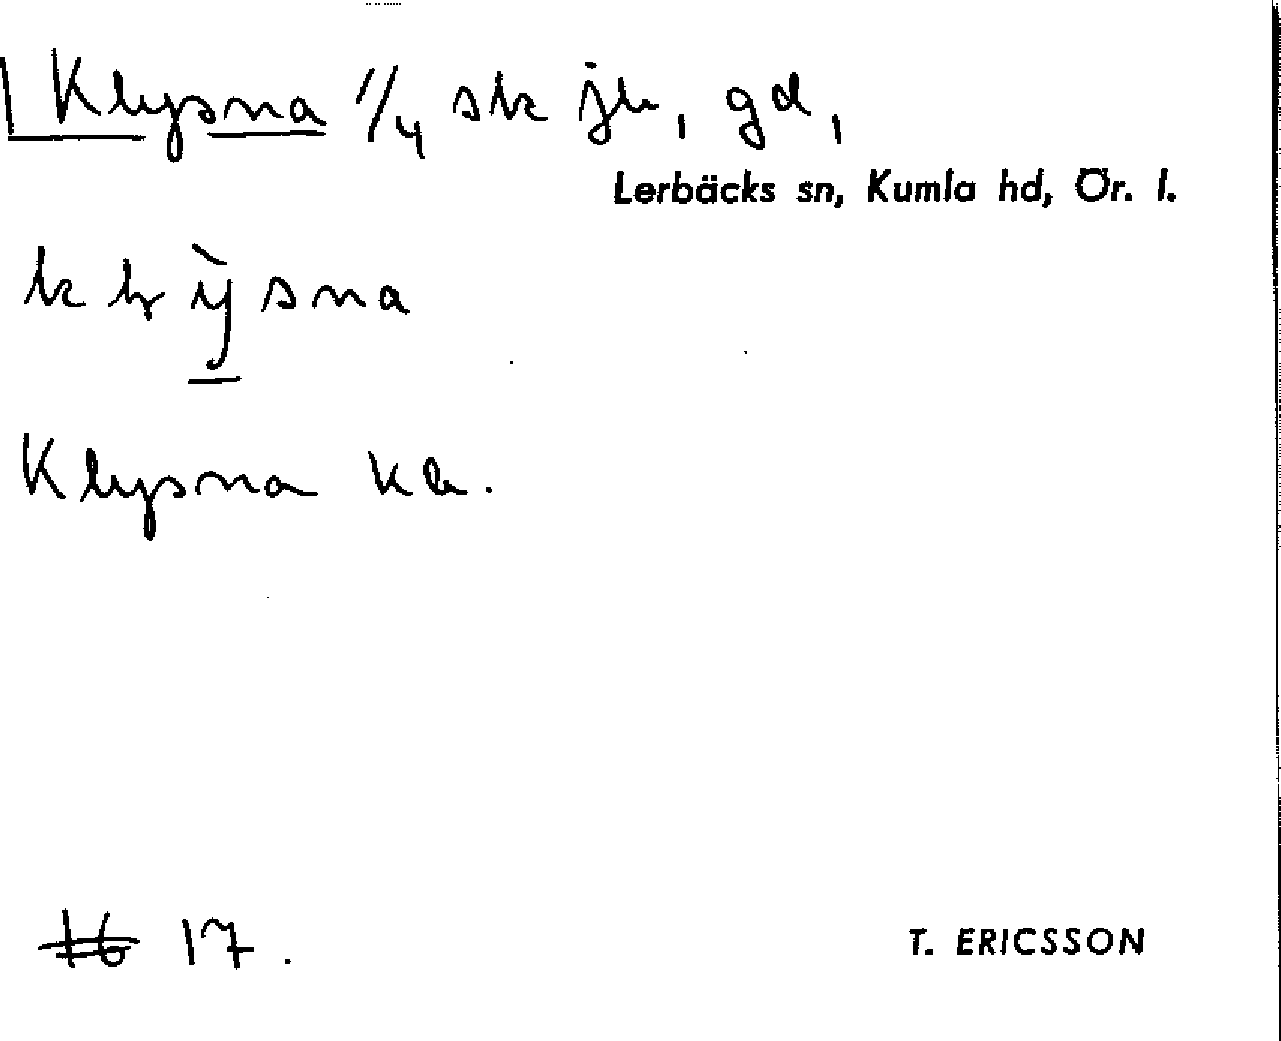 Klysna 1/4 sk jb, gd,
Lerbäcks sn, Kumla hd, Ör. l.
klỳsna
Klysna kb.
16 17.
T. ERICSSON